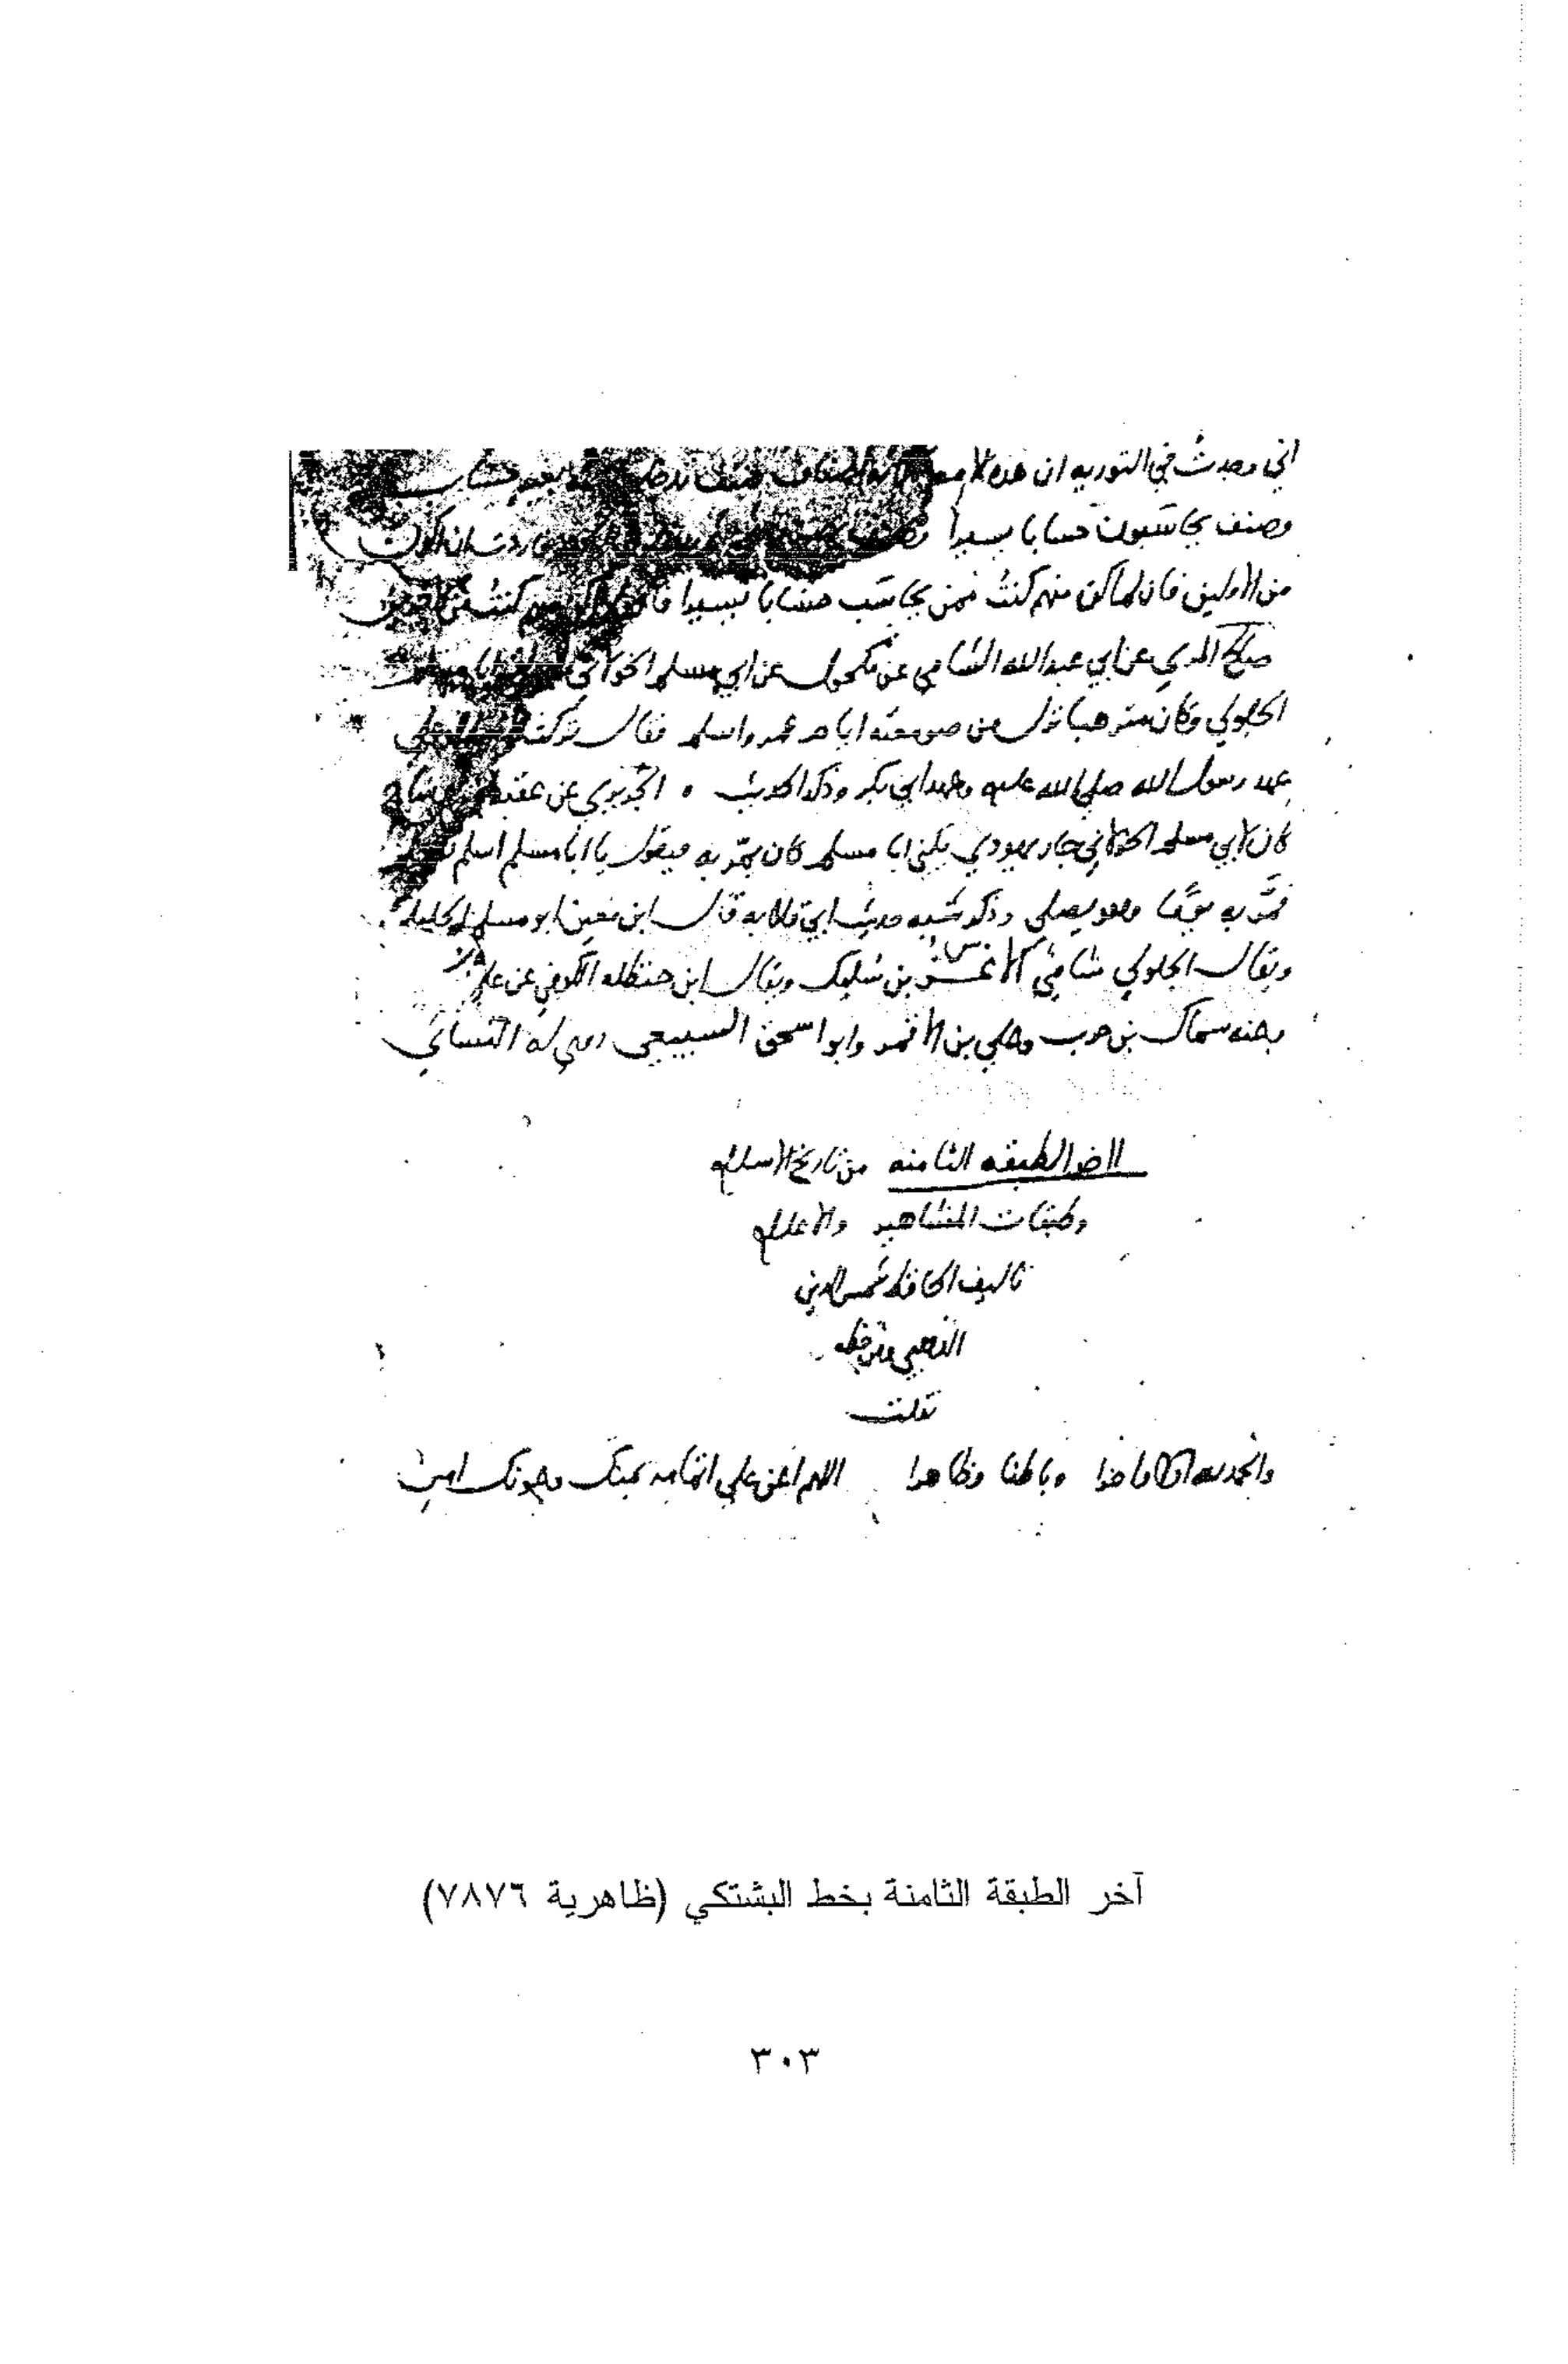 اني وجدت في التوريه ان هذه الامه ثلاثه اصناف صنف يدخل بغير حساب
وصنف يحاسبون حسابا يسيرا وصنف اردت ان اكون
من الاولين فان لم اكن منهم كنت ممن يحاسب حسابا يسيرا فان لم اكن منهم كنت من
صالح المري عن ابي عبد الله الشامي عن مكحول عن ابي مسلم الخولاني
الجلولي وكان مترهبا نزل من صومعته ايام عمر واسلم فقال تركت على
عهد رسول الله صلى الله عليه وعهد ابي بكر وذكر الحديث ٥ الجريري عن عقبه
كان لابي مسلم الخولاني جار يهودي يكنى ابا مسلم كان يمر به فيقول يا ابا مسلم اسلم
فمر به يوما وهو يصلي وذكر شبيه حديث ابي قلابه قال ابن معين ابو مسلم الجليلي
ويقال الجلولي شامي الاغر بن سليك ويقال ابن حنظله الكوفي عن علي
وعنه سماك بن حرب وعلي بن الاقمر وابو اسحق السبيعي روى له النسائي
اخر الطبقه الثامنه من تاريخ الاسلام
وطبقات المشاهير والاعلام
تاليف الحافظ شمس الدين
الذهبي ومن خطه
نقلت
والحمد لله اولا واخرا وباطنا وظاهرا اللهم اعن على اتمامه بمنك وعونك امين
آخر الطبقة الثامنة بخط البشتكي (ظاهرية ٧٨٧٦)
٣٠٣